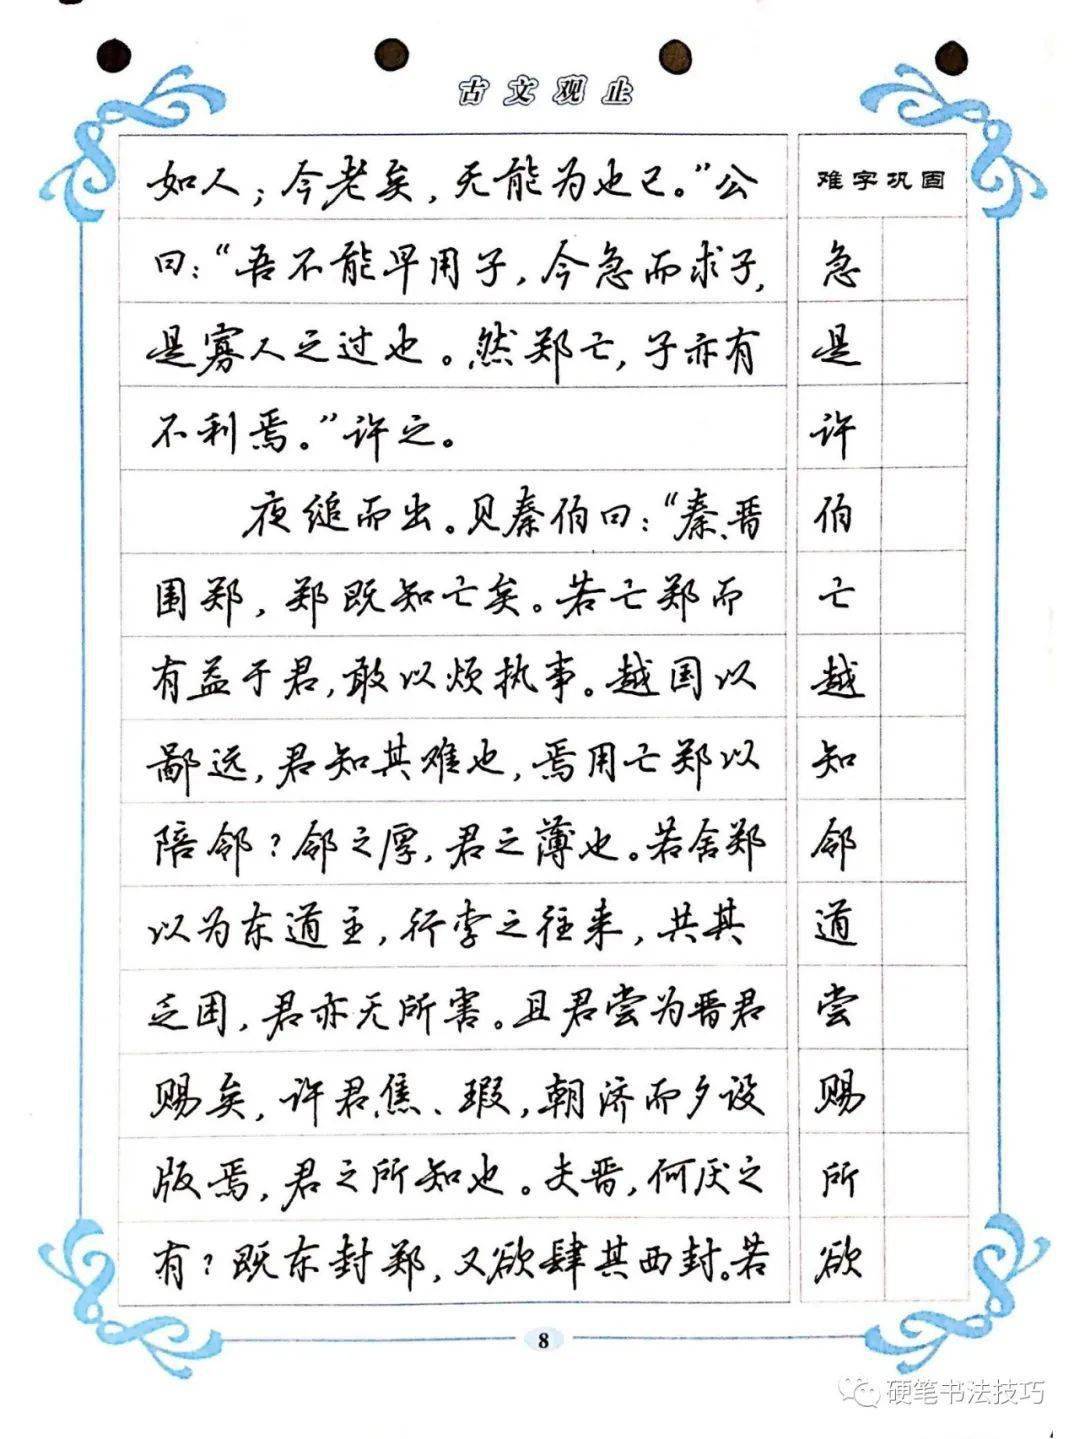 古文观止
如人；今老矣，无能为也已。”公
曰：“吾不能早用子，今急而求子，
是寡人之过也。然郑亡，子亦有
不利焉。”许之。
夜缒而出。见秦伯曰：“秦、晋
围郑，郑既知亡矣。若亡郑而
有益于君，敢以烦执事。越国以
鄙远，君知其难也，焉用亡郑以
陪邻？邻之厚，君之薄也。若舍郑
以为东道主，行李之往来，共其
乏困，君亦无所害。且君尝为晋君
赐矣，许君焦、瑕，朝济而夕设
版焉，君之所知也。夫晋，何厌之
有？既东封郑，又欲肆其西封。若
难字巩固
急
是
许
伯
亡
越
知
邻
道
尝
赐
所
欲
8
硬笔书法技巧